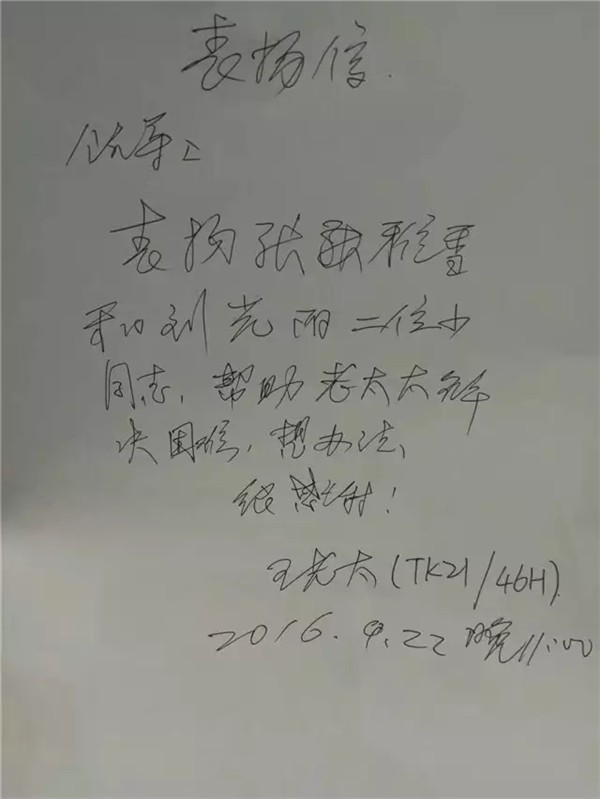 表扬信
表扬张
和刘光丽二位少
同志,帮助老太太解
决困难,想办法,
感谢!
王老太(TK21/46H)
2016.9.22 晚11:00